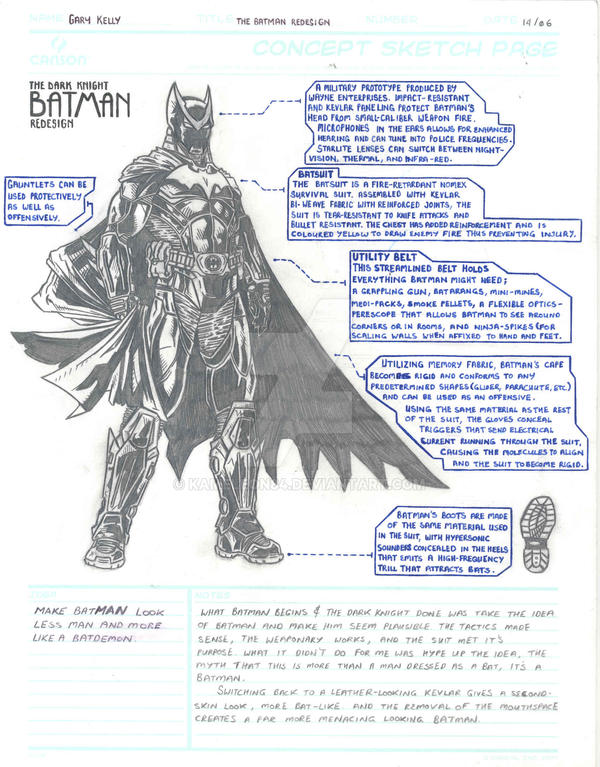 NAME GARY KELLY TITLE THE BATMAN REDESIGN NUMBER DATE 14/06
CANSON CONCEPT SKETCH PAGE
THE DARK KNIGHT
BATMAN
REDESIGN
A MILITARY PROTOTYPE PRODUCED BY
WAYNE ENTERPRISES. IMPACT-RESISTANT
AND KEVLAR PANELING PROTECT BATMAN'S
HEAD FROM SMALL-CALIBER WEAPON FIRE.
MICROPHONES IN THE EARS ALLOWS FOR ENHANCED
HEARING AND CAN TUNE INTO POLICE FREQUENCIES.
STARLITE LENSES CAN SWITCH BETWEEN NIGHT-
VISION, THERMAL, AND INFRA-RED.
GAUNTLETS CAN BE
USED PROTECTIVELY
AS WELL AS
OFFENSIVELY.
BATSUIT
THE BATSUIT IS A FIRE-RETARDANT NOMEX
SURVIVAL SUIT. ASSEMBLED WITH KEVLAR
BI-WEAVE FABRIC WITH REINFORCED JOINTS, THE
SUIT IS TEAR-RESISTANT TO KNIFE ATTACKS AND
BULLET RESISTANT. THE CHEST HAS ADDED REINFORCEMENT AND IS
COLOURED YELLOW TO DRAW ENEMY FIRE THUS PREVENTING INJURY.
UTILITY BELT
THIS STREAMLINED BELT HOLDS
EVERYTHING BATMAN MIGHT NEED;
A GRAPPLING GUN, BATARANGS, MINI-MINES,
MEDI-PACKS, SMOKE PELLETS, A FLEXIBLE OPTICS-
PERESCOPE THAT ALLOWS BATMAN TO SEE AROUND
CORNERS OR IN ROOMS, AND NINJA-SPIKES (FOR
SCALING WALLS WHEN AFFIXED TO HAND AND FEET.
UTILIZING MEMORY FABRIC, BATMAN'S CAPE
BECOMES RIGID AND CONFORMS TO ANY
PREDETERMINED SHAPES (GLIDER, PARACHUTE, ETC)
AND CAN BE USED AS AN OFFENSIVE.
USING THE SAME MATERIAL AS THE REST
OF THE SUIT, THE GLOVES CONCEAL
TRIGGERS THAT SEND ELECTRICAL
CURRENT RUNNING THROUGH THE SUIT,
CAUSING THE MOLECULES TO ALIGN
AND THE SUIT TO BECOME RIGID.
BATMAN'S BOOTS ARE MADE
OF THE SAME MATERIAL USED
IN THE SUIT, WITH HYPERSONIC
SOUNDERS CONCEALED IN THE HEELS
THAT EMITS A HIGH-FREQUENCY
TRILL THAT ATTRACTS BATS.
MAKE BATMAN LOOK
LESS MAN AND MORE
LIKE A BATDEMON.
NOTES
WHAT BATMAN BEGINS & THE DARK KNIGHT DONE WAS TAKE THE IDEA
OF BATMAN AND MAKE HIM SEEM PLAUSIBLE. THE TACTICS MADE
SENSE, THE WEAPONARY WORKS, AND THE SUIT MET IT'S
PURPOSE. WHAT IT DIDN'T DO FOR ME WAS HYPE UP THE IDEA, THE
MYTH THAT THIS IS MORE THAN A MAN DRESSED AS A BAT, IT'S A
BATMAN.
SWITCHING BACK TO A LEATHER-LOOKING KEVLAR GIVES A SECOND-
SKIN LOOK, MORE BAT-LIKE AND THE REMOVAL OF THE MOUTHSPACE
CREATES A FAR MORE MENACING LOOKING BATMAN.